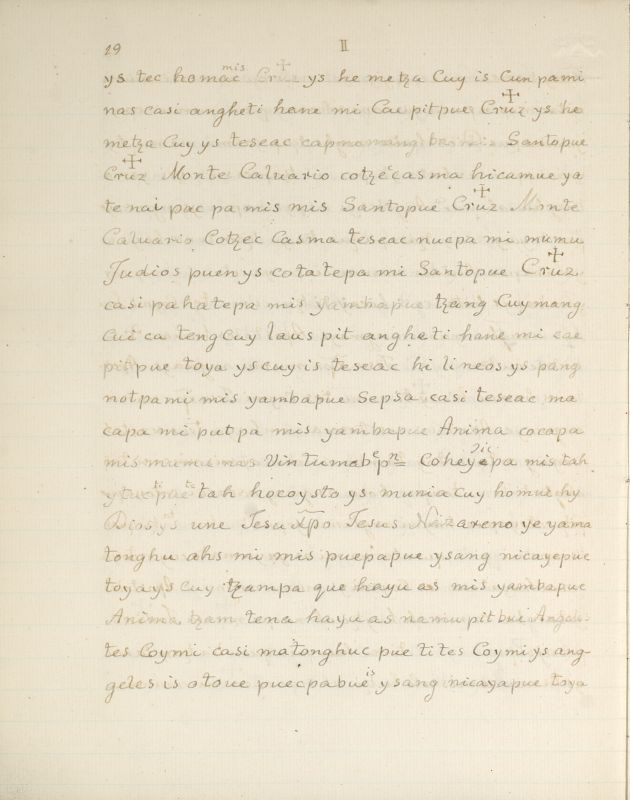 29 II
ys tec homac mis Cr✝ ys he metza Cuy is Cunpami
nas casi angheti hane mi Cae pitpue Cruz ✝ ys he
metza Cuy ys teseac Santopue
Cruz ✝ Monte Caluario cotzecasma hicamue ya
tenai pac pa mis mis Santopue Cruz ✝ Monte
Caluario Cotzec Casma teseac nucpa mi mumu
Judios puenys cotatepa mi Santopue Cruz ✝
casi pahatepa mis yambapue tzang Cuymang
cui ca tengcuy laus pit angheti hane mi cae
pitpue toya yscuy is teseac hi lineos ys pang
notpami mis yambapue Sepsa casi teseac ma
capa mi putpa mis yambapue Anima cocapa
mis mumu nas Vintumabepn= Coheyepa mis tah
tah hocoysto ys munia cuy homue hy
Dios ys une Jesu Xpo Jesus Nazareno ye yama
tonghu ahs mi mis puepapue ysang nicayepue
toyays cuy tzampa que hayuas mis yambapue
Anima tzam tena hayuas namu pit bui Angel-
tes Coymi casi matonghuc pue tites Coymi ys ang-
geles is otoue puecpabue is ysang nicayapue toya